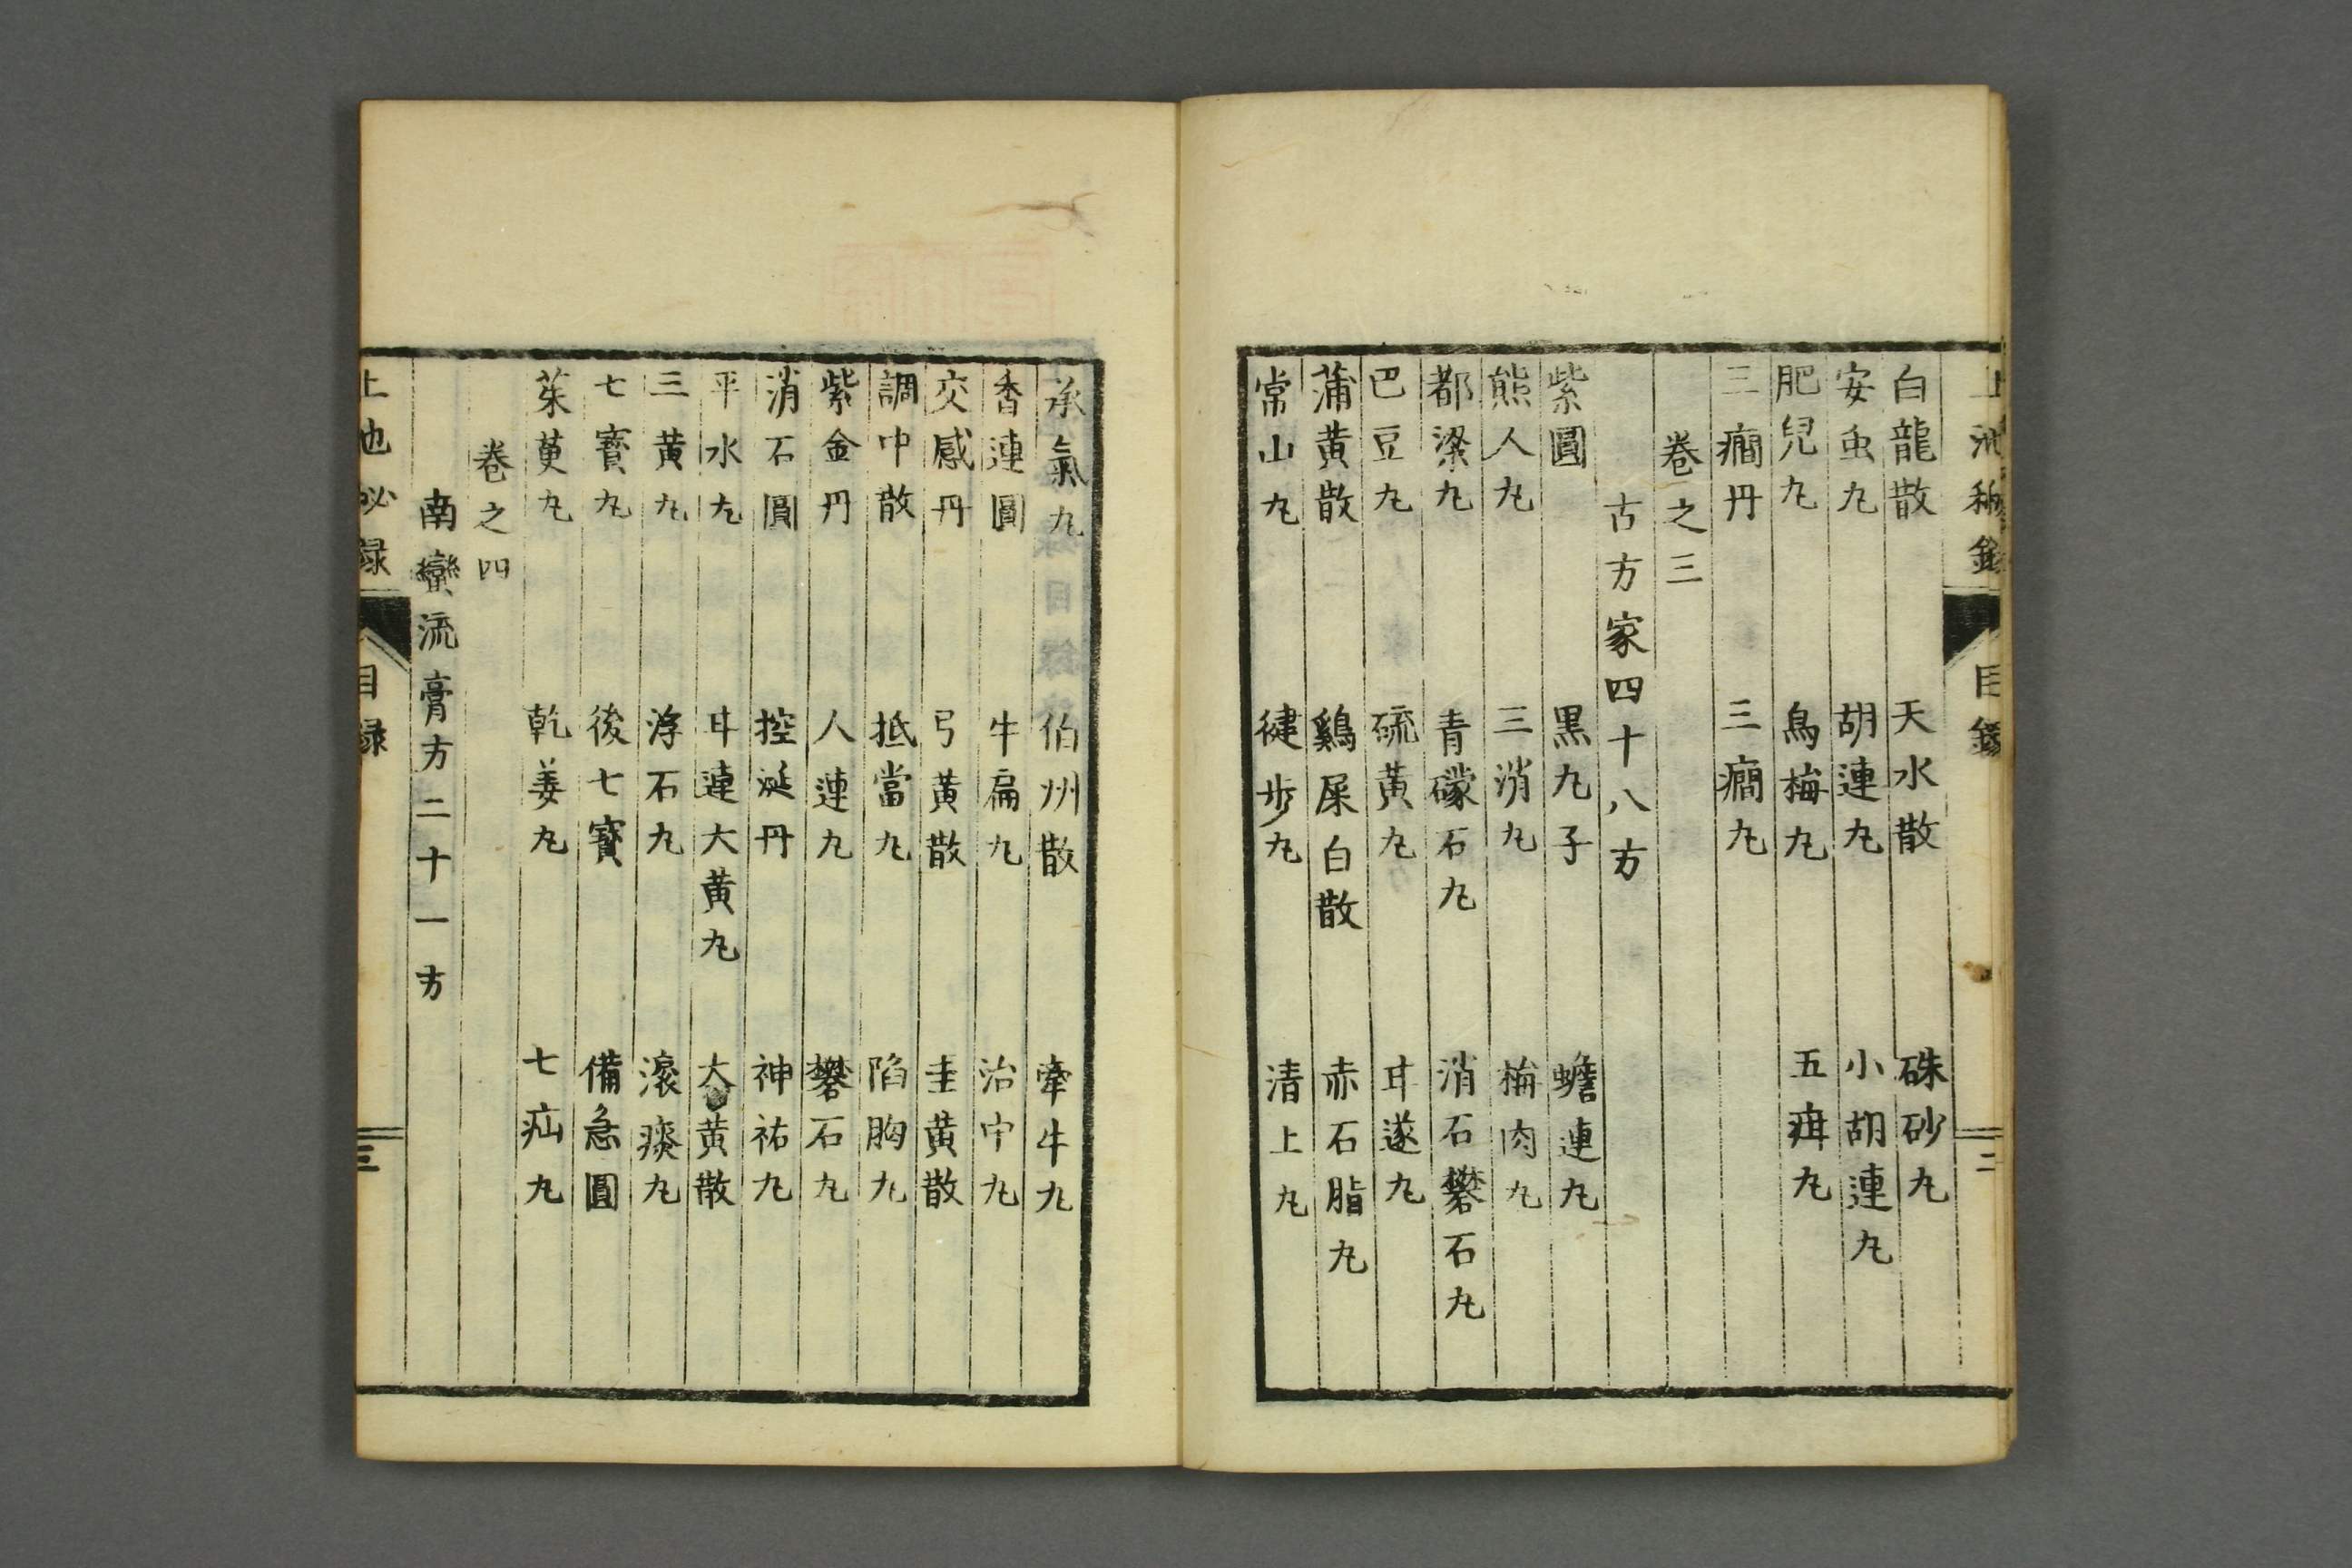 上池秘録 目録 二
白龍散 天水散 硃砂丸
安虫丸 胡連丸 小胡連丸
肥兒丸 烏梅丸 五疳丸
三癇丹 三癇丸
卷之三
古方家四十八方
紫圓 黒丸子 蟾連丸
熊人丸 三消丸 梅肉丸
都梁丸 青礞石丸 消石礬石丸
巴豆丸 硫黄丸 甘遂丸
蒲黄散 鷄屎白散 赤石脂丸
常山丸 健步丸 清上丸
承氣丸 伯州散 牽牛丸
香連圓 牛扁丸 治中丸
交感丹 弓黄散 圭黄散
調中散 抵當丸 陷胸丸
紫金丹 人連丸 礬石丸
消石圓 控涎丹 神祐丸
平水丸 甘連大黄丸 大黄散
三黄丸 浮石丸 滾痰丸
七寳丸 後七寳 備急圓
茱萸丸 乾姜丸 七疝丸
卷之四
南蠻流膏方二十一方
上池秘録 目録 三